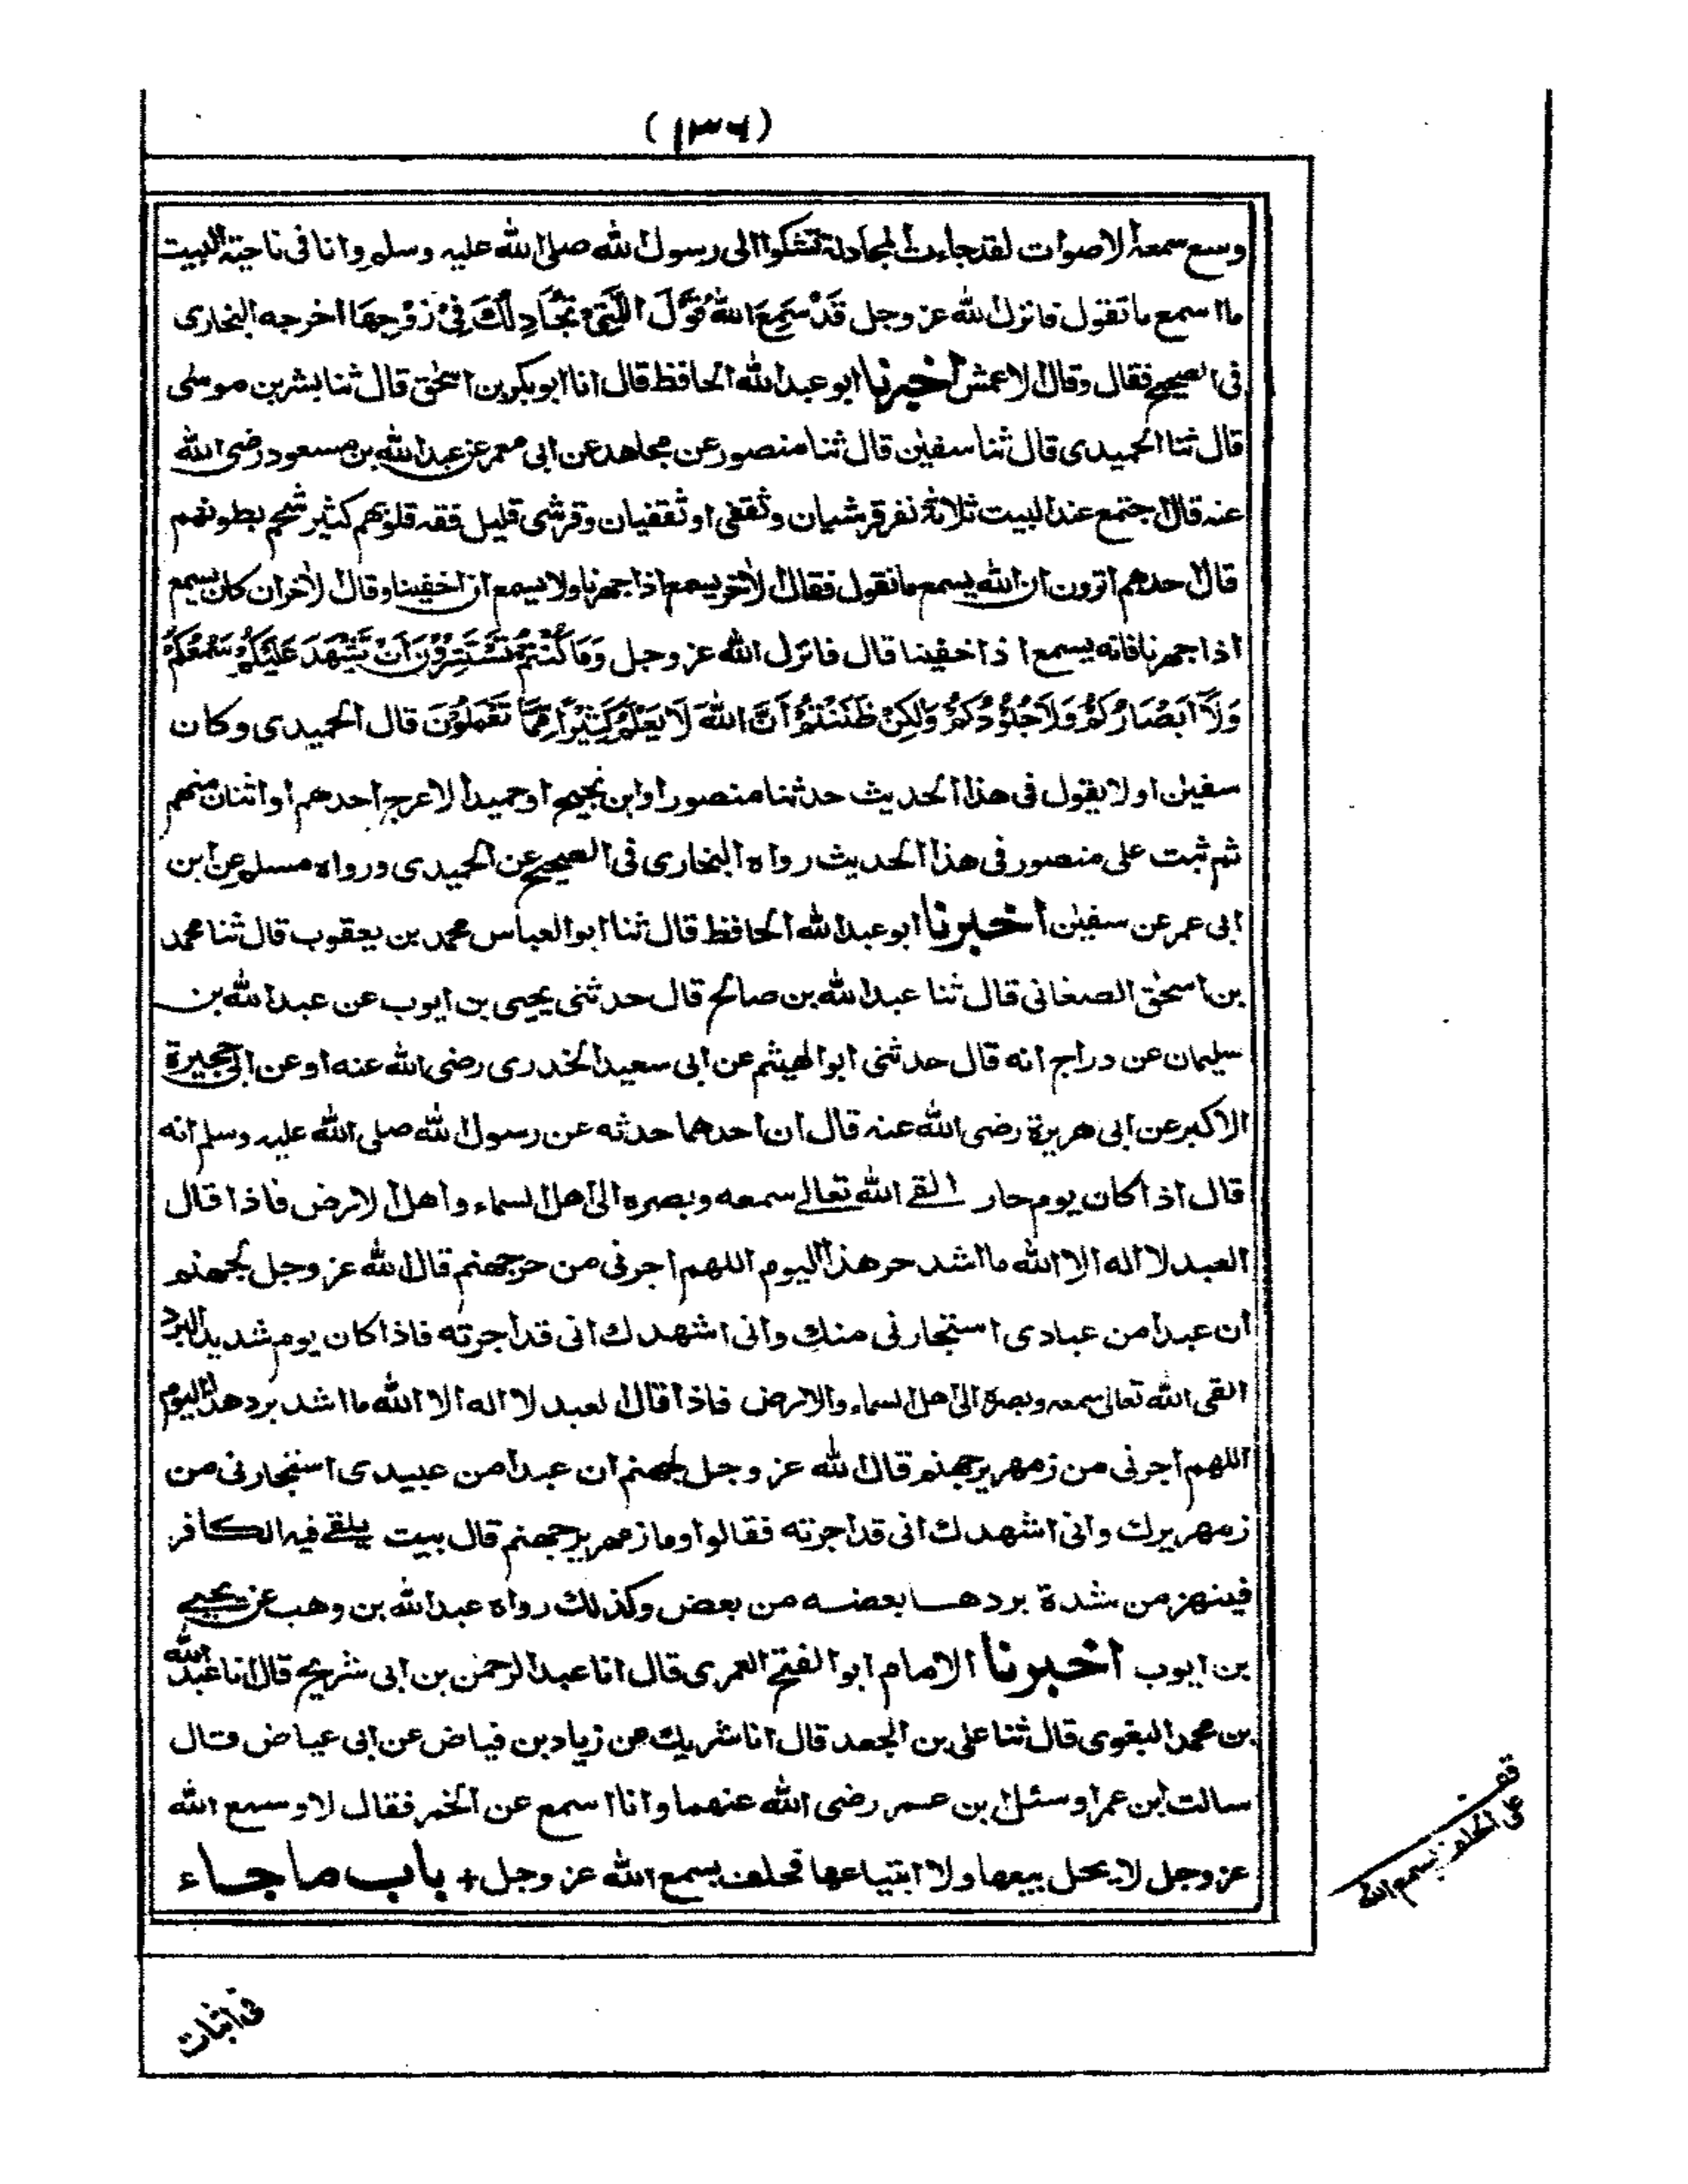 (١٣٦)
وسع سمعه الاصوات لقد جاءت المجادلة تشكوا الى رسول الله صلى الله عليه وسلم وانا فى ناحية البيت
ما اسمع ما تقول فانزل الله عز وجل قَدْ سَمِعَ اللهُ قَوْلَ الَّتِيْ تُجَادِلُكَ فِيْ زَوْجِهَا اخرجه البخارى
فى الصحيح فقال وقال الاعمش اخبرنا ابو عبد الله الحافظ قال انا ابو بكر بن اسحٰق قال ثنا بشر بن موسٰى
قال ثنا الحميدى قال ثنا سفيٰن قال ثنا منصور عن مجاهد عن ابى معمر عن عبد الله بن مسعود رضى الله
عنه قال اجتمع عند البيت ثلاثة نفر قرشيان وثقفى او ثقفيان وقرشى قليل فقه قلوبهم كثير شحم بطونهم
قال احدهم اترون ان الله يسمع ما نقول فقال الاخر يسمع اذا جهرنا ولا يسمع ان اخفينا وقال الاخر ان كان يسمع
اذا جهرنا فانه يسمع اذا خفينا قال فانزل الله عز وجل وَمَا كُنْتُمْ تَسْتَتِرُوْنَ اَنْ يَّشْهَدَ عَلَيْكُمْ سَمْعُكُمْ
وَلَآ اَبْصَارُكُمْ وَلَا جُلُوْدُكُمْ وَلٰكِنْ ظَنَنْتُمْ اَنَّ اللهَ لَا يَعْلَمُ كَثِيْرًا مِّمَّا تَعْمَلُوْنَ قال الحميدى وكان
سفيٰن اولا يقول فى هذا الحديث حدثنا منصور او ابن نجيح او حميد الاعرج احدهم او اثنان منهم
ثم ثبت على منصور فى هذا الحديث رواه البخارى فى الصحيح عن الحميدى ورواه مسلم عن ابن
ابى عمر عن سفيٰن اخبرنا ابو عبد الله الحافظ قال ثنا ابو العباس محمد بن يعقوب قال ثنا محمد
بن اسحٰق الصغانى قال ثنا عبد الله بن صالح قال حدثنى يحيى بن ايوب عن عبد الله بن
سليمان عن دراج انه قال حدثنى ابو الهيثم عن ابى سعيد الخدرى رضى الله عنه او عن ابى حجيرة
الاكبر عن ابى هريرة رضى الله عنه قال ان احدهما حدثه عن رسول الله صلى الله عليه وسلم انه
قال اذا كان يوم حار القے الله تعالے سمعه وبصره الى اهل السماء واهل الارض فاذا قال
العبد لا اله الا الله ما اشد حر هذا اليوم اللهم اجرنى من حر جهنم قال الله عز وجل لجهنم
ان عبدا من عبادى استجارنى منك وانى اشهدك انى قد اجرته فاذا كان يوم شديد البرد
القى الله تعالى سمعه وبصره الى اهل السماء والارض فاذا قال العبد لا اله الا الله ما اشد برد هذا اليوم
اللهم اجرنى من زمهرير جهنم قال الله عز وجل لجهنم ان عبدا من عبيدى استجارنى من
زمهريرك وانى اشهدك انى قد اجرته فقالوا وما زمهرير جهنم قال بيت يلقے فيه الكافر
فينهز من شدة بردها بعضه من بعض وكذلك رواه عبد الله بن وهب عن يحيے
بن ايوب اخبرنا الامام ابو الفتح العمرى قال انا عبد الرحمن بن ابى شريح قال انا عبد الله
بن محمد البغوى قال ثنا على بن الجعد قال انا شريك عن زياد بن فياض عن ابى عياض قال
سالت ابن عمر او سئل ابن عمر رضى الله عنهما وانا اسمع عن الخمر فقال لا وسمع الله
عز وجل لا يحل بيعها ولا ابتياعها فحلف بسمع الله عز وجل + باب ما جاء
قف
على الحلف بسمع الله
فى اثبات